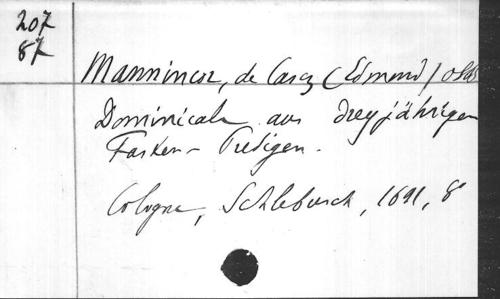 207
87
Mannincor, de Casez (Edmond)
Dominicale aus dreyjährigen
Fasten-Predigen.
Cologne, Schlebusch, 1691, 8°